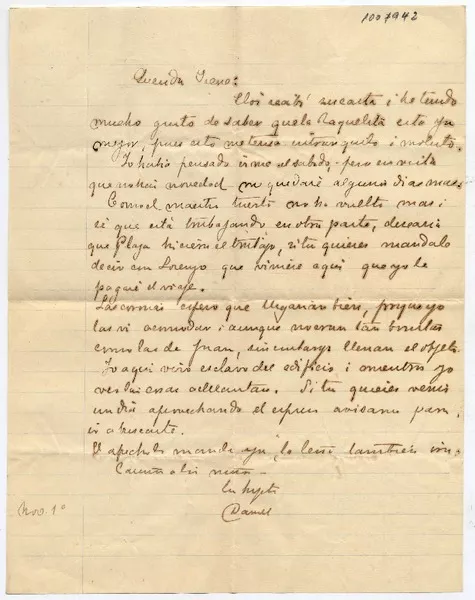 1007942
Querida Juana:
Hoi recibí su carta i he tenido
mucho gusto de saber que la Raquelita esta ya
mejor, pues esto me tenia intranquilo i molesto.
Yo habia pensado irme el sabado, pero en vista
que no hai novedad me quedaré algunos dias mas.
Como el maestro tuerto no ha vuelto mas i
sé que está trabajando en otra parte, desearia
que Plaza hiciera el trabajo, si tu quieres mandalo
decir con Lorenzo que viniera aqui que yo le
pagaré el viaje.
Las espero que llegaran bien, porque yo
las vi acomodar i aunque no eran tan bonitas
como las de Juan, sin embargo llenan el objeto.
Yo aqui vivo esclavo del edificio i mientras yo
veo las cosas adelantan. Si tu quieres venir
un dia aprovechando el espreso avisame para
ir a buscarte.
El mande ya, lo leísi tambien
Cariños a los niños
tu
Daniel
Nov. 1º